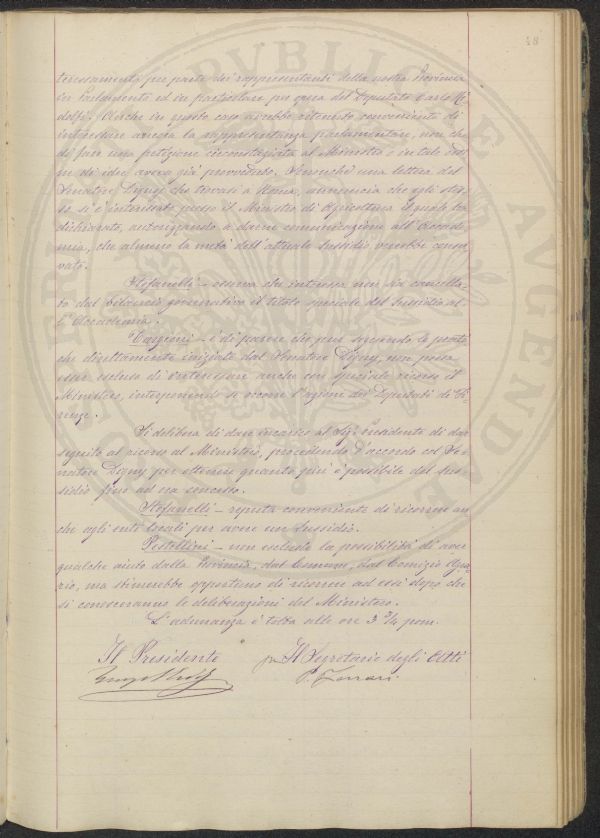 48
teressamento per parte dei rappresentanti della nostra Provincia
in Parlamento ed in particolare per opera del Deputato Carlo Ri-
dolfi. Anche in questo caso avrebbe ritenuto conveniente di
interessare ancora la rappresentanza parlamentare, non che
di fare una petizione circostanziata al Ministro e in tale
di idee aveva già provveduto. Sennonchè una lettera del
Senatore Digny che trovasi a Roma, annunzia che egli stes-
so si è interessato presso il Ministro di Agricoltura il quale ha
dichiarato, autorizzando a darne comunicazione all'Accade-
mia, che almeno la metà dell'attuale sussidio verrebbe conser-
vato.
Stefanelli - osserva che interessa non sia cancella-
to dal bilancio governativo il titolo speciale del sussidio al-
l'Accademia.
- è di parere che pur seguendo le prati-
che direttamente iniziate dal Senatore Digny, non possa
esser escluso di interessare anche con speciale ricorso il
Ministero, interponendo se occorre l'azione dei Deputati di Fi-
renze.
Si delibera di dare incarico al Sigr. Presidente di dar
seguito al ricorso al Ministero, procedendo d'accordo col Se-
natore Digny per ottenere quanto più è possibile del sus-
sidio fino ad ora concesso.
Stefanelli - reputa conveniente di ricorrere an
che agli enti locali per avere un sussidio.
Pestellini - non esclude la possibilità di aver
qualche aiuto dalla Provincia, dal Comune, dal Comizio Agra-
rio, ma stimerebbe opportuno di ricorrere ad essi dopo che
si conosceranno le deliberazioni del Ministero.
L'adunanza è tolta alle ore 3 3/4 pom.
Il Presidente
per Il Segretario degli Atti
P. Ferrari
PUBLICAE
AUGENDAE